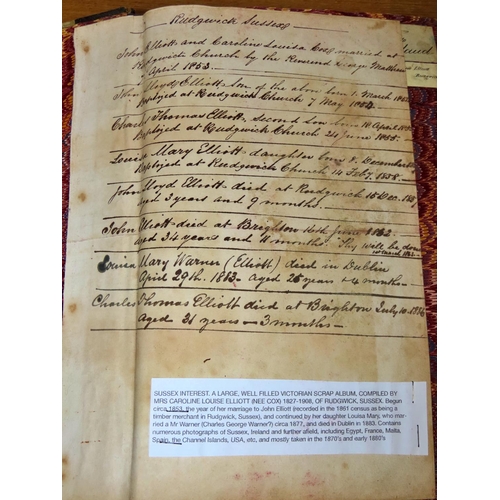 Rudgwick Sussex
John Elliott and Caroline Louisa Cox married at
Rudgwick Church by the Reverend George Matthew
April 1853.
John Lloyd Elliott Son of the above born 1. March 1854
Baptized at Rudgwick Church 7 May 1854.
Charles Thomas Elliott, Second Son born 18 April 1855
Baptized at Rudgwick Church 24 June 1855.
Louisa Mary Elliott daughter born 8. December
Baptized at Rudgwick Church 14 Feby. 1858.
John Lloyd Elliott died at Rudgwick 15 Dec. 1857
aged 3 years and 9 months.
John Elliott died at Brighton 14th June 1862
aged 34 years and 11 months. Thy will be done
Louisa Mary Warner (Elliott) died in Dublin
April 29th. 1883. Aged 25 years + 4 months
Charles Thomas Elliott died at Brighton July 10.
Aged 31 years - 3 months -
SUSSEX INTEREST. A LARGE, WELL FILLED VICTORIAN SCRAP ALBUM, COMPILED BY
MRS CAROLINE LOUISE ELLIOTT (NEE COX) 1827-1908, OF RUDGWICK, SUSSEX. Begun
circa 1853, the year of her marriage to John Elliott (recorded in the 1861 census as being a
timber merchant in Rudgwick, Sussex), and continued by her daughter Louisa Mary, who mar-
ried a Mr Warner (Charles George Warner?) circa 1877, and died in Dublin in 1883. Contains
numerous photographs of Sussex, Ireland and further afield, including Egypt, France, Malta,
Spain, the Channel Islands, USA, etc, and mostly taken in the 1870's and early 1880's